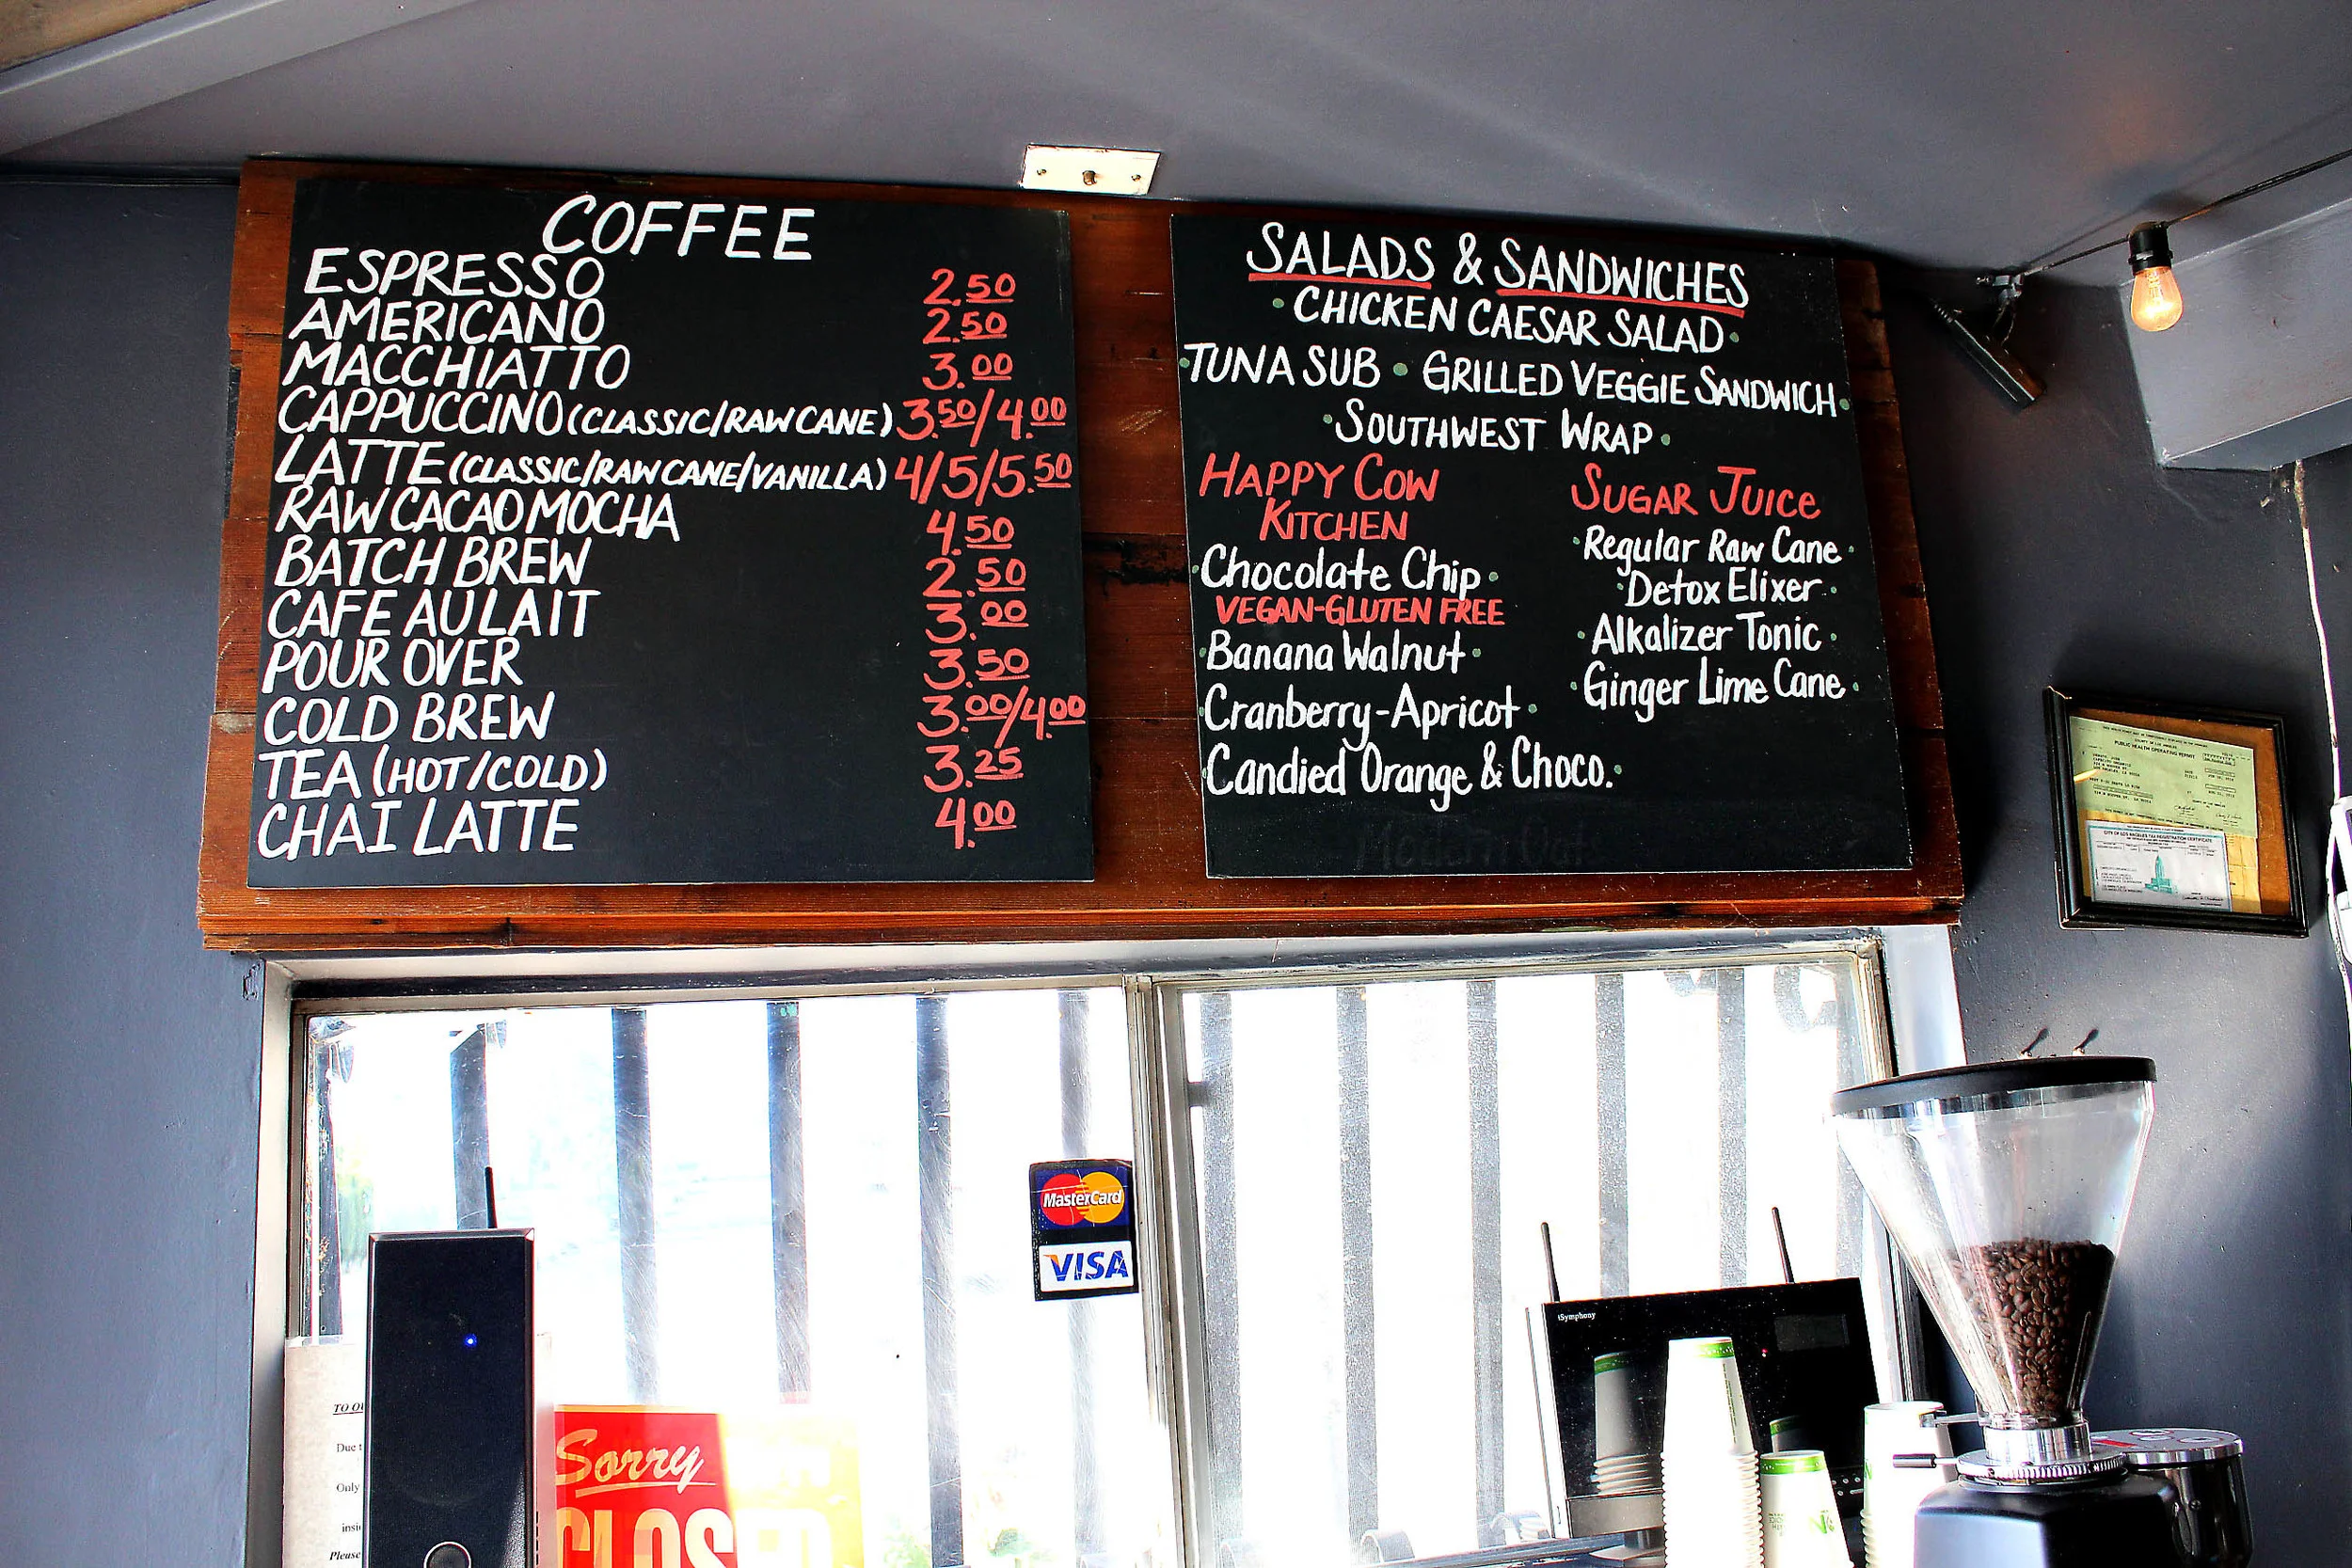 COFFEE
ESPRESSO 2.50
AMERICANO 2.50
MACCHIATTO 3.00
CAPPUCCINO (CLASSIC/RAW CANE) 3.50/4.00
LATTE (CLASSIC/RAW CANE/VANILLA) 4/5/5.50
RAW CACAO MOCHA 4.50
BATCH BREW 2.50
CAFE AU LAIT 3.00
POUR OVER 3.50
COLD BREW 3.00/4.00
TEA (HOT/COLD) 3.25
CHAI LATTE 4.00
SALADS & SANDWICHES
• CHICKEN CAESAR SALAD •
• TUNA SUB • GRILLED VEGGIE SANDWICH •
• SOUTHWEST WRAP •
HAPPY COW
KITCHEN
• Chocolate Chip •
VEGAN-GLUTEN FREE
• Banana Walnut •
• Cranberry-Apricot •
• Candied Orange & Choco. •
SUGAR JUICE
• Regular Raw Cane •
• Detox Elixer •
• Alkalizer Tonic •
• Ginger Lime Cane •
PUBLIC HEALTH OPERATING PERMIT
CITY OF LOS ANGELES TAX REGISTRATION CERTIFICATE
MasterCard
VISA
iSymphony
Sorry
CLOSED
TO
Due
Only
Please